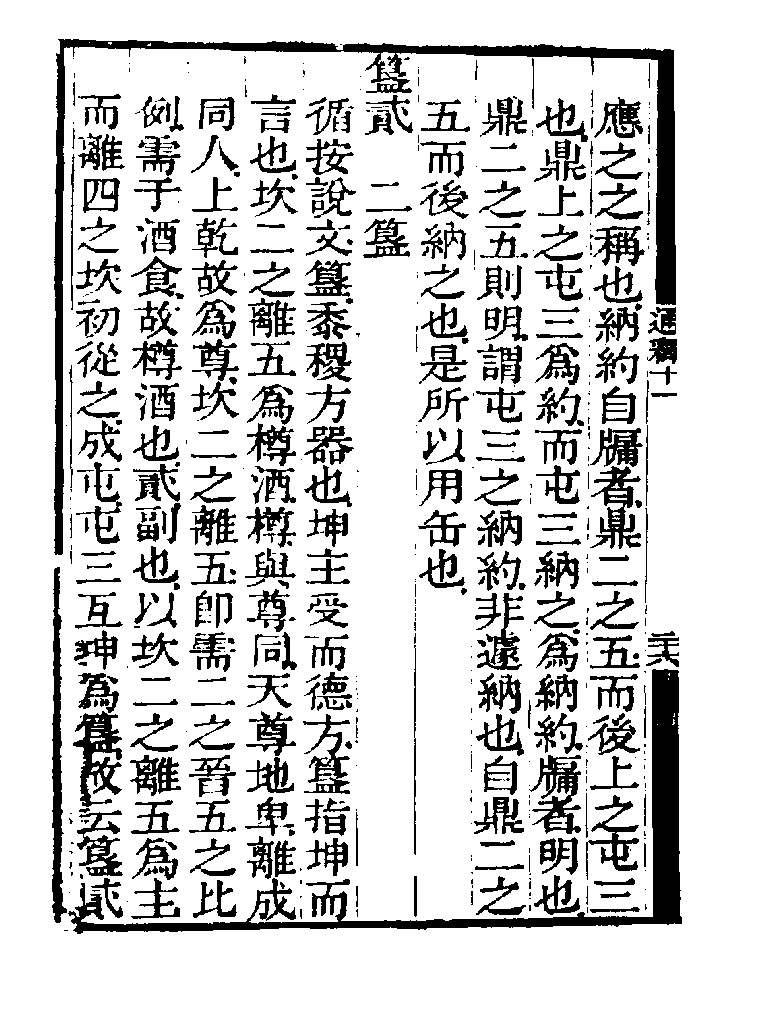 應之之稱也納約自牖者鼎二之五而後上之屯三
也鼎上之屯三爲約而屯三納之爲納約牖者明也
鼎二之五則明謂屯三之納約非遽納也自鼎二之
五而後納之也是所以用缶也
簋貳　二簋
循按說文簋黍稷方器也坤主受而德方簋指坤而
言也坎二之離五爲樽酒樽與尊同天尊地卑離成
同人上乾故爲尊坎二之離五即需二之晉五之比
例需于酒食故樽酒也貳副也以坎二之離五爲主
而離四之坎初從之成屯屯三互坤爲簋故云簋貳
通釋十一
二十六